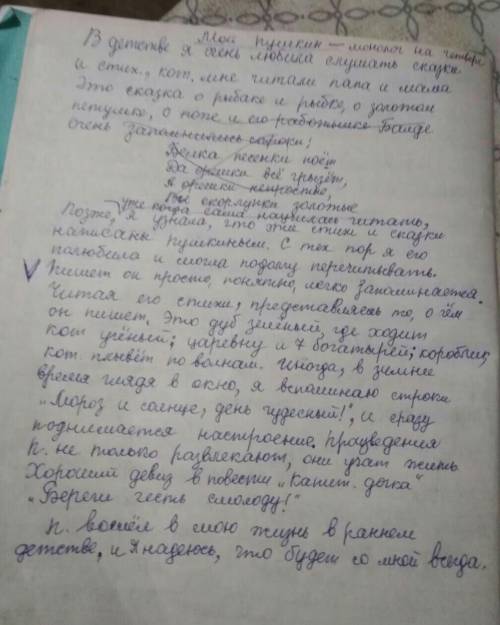 Мой Пушкин – монолог на четверг
В детстве я очень любила слушать сказки
и стих., кот. мне читали папа и мама
Это сказка о рыбаке и рыбке, о золотом
петушке, о попе и его работнике Балде
очень запомнились строки:
Белка песенки поёт
Да орешки всё грызёт,
А орешки непростые,
Все скорлупки золотые
уже когда сама научилась читать,
Позже, я узнала, что эти стихи и сказки
написаны Пушкиным. С тех пор я его
полюбила и могла подолгу перечитывать.
V Пишет он просто, понятно, легко запоминается.
Читая его стихи, представляешь то, о чём
он пишет. Это дуб зелёный, где ходит
кот учёный; царевну и 7 богатырей; кораблик,
кот. плывёт по волнам. Иногда, в зимнее
время глядя в окно, я вспоминаю строки
„Мороз и солнце, день чудесный!", и сразу
поднимается настроение. Произведения
П. не только развлекают, они учат жить
Хороший девиз в повести „Капит. дочка"
„Береги честь смолоду!"
П. вошёл в мою жизнь в раннем
детстве, и я надеюсь, что будет со мной всегда.